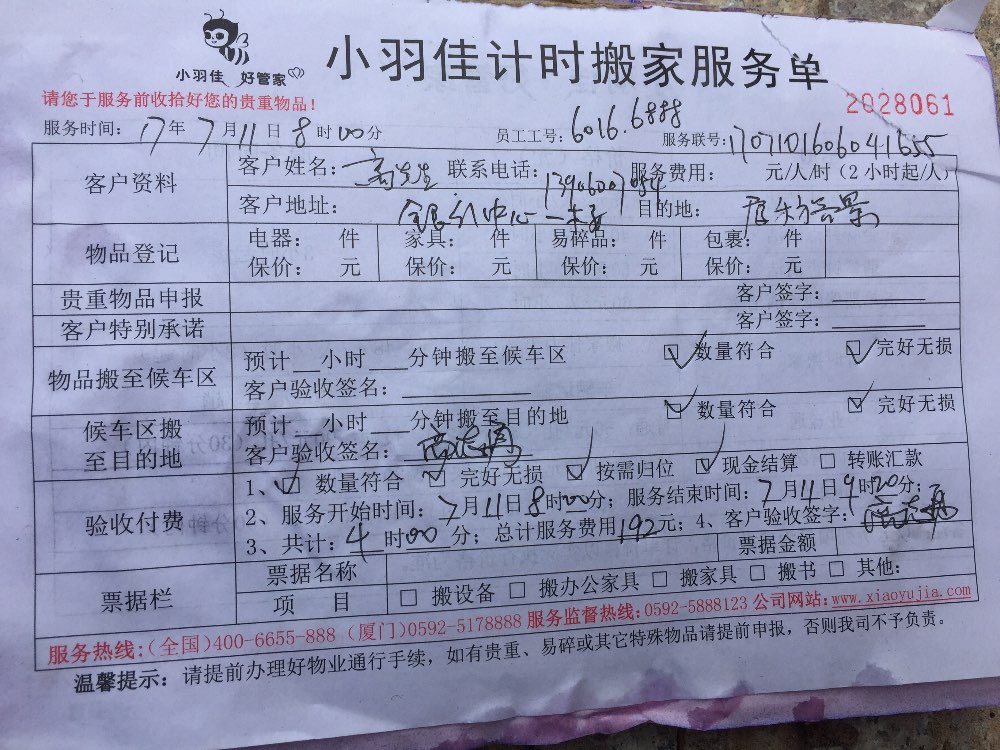 小羽佳 好管家
小羽佳计时搬家服务单
请您于服务前收拾好您的贵重物品！
2028061
服务时间： 17年7月11日8时00分 员工工号：6016.6888 服务联号：1707101606041655
客户资料 客户姓名：高先生 联系电话： 服务费用： 元/人/时（2小时起/人）
客户地址： 目的地：
物品登记 电器： 件 家具： 件 易碎品： 件 包裹： 件
保价： 元 保价： 元 保价： 元 保价： 元
贵重物品申报 客户签字：
客户特别承诺 客户签字：
物品搬至候车区 预计__小时___分钟搬至候车区 ☑数量符合 ☑完好无损
客户验收签名：
候车区搬至目的地 预计__小时___分钟搬至目的地 ☑数量符合 ☑完好无损
客户验收签名：
验收付费 1、☑数量符合 ☑完好无损 ☑按需归位 ☑现金结算 □转账汇款
2、服务开始时间：7月11日8时00分；服务结束时间：7月11日 时 分；
3、共计：4时00分；总计服务费用192元；4、客户验收签字：
票据栏 票据名称 票据金额
项 目 □ 搬设备 □ 搬办公家具 □ 搬家具 □ 搬书 □ 其他：
服务热线：（全国）400-6655-888（厦门）0592-5178888 服务监督热线：0592-5888123 公司网站：www.xiaoyujia.com
温馨提示：请提前办理好物业通行手续，如有贵重、易碎或其它特殊物品请提前申报，否则我司不予负责。